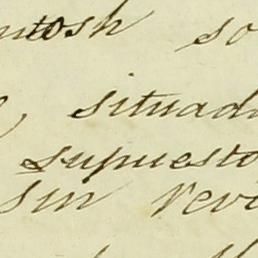 ntosh so
situad
supuesto
sin rev